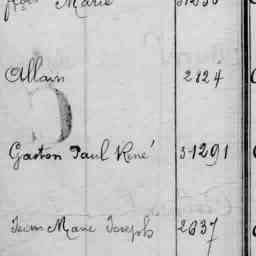 Marie
Allain 2124
Gaston Paul René 31291
Marie Joseph 2637